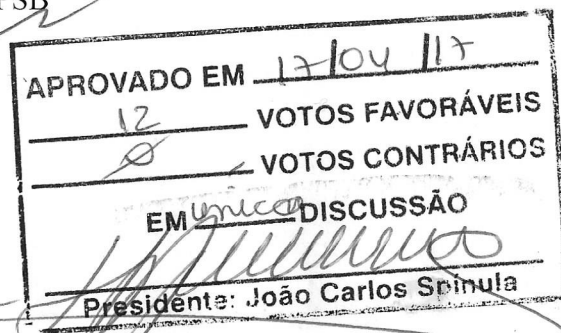 PSB
APROVADO EM 17/04/17
12 VOTOS FAVORÁVEIS
Ø VOTOS CONTRÁRIOS
EM única DISCUSSÃO
Presidente: João Carlos Spínula